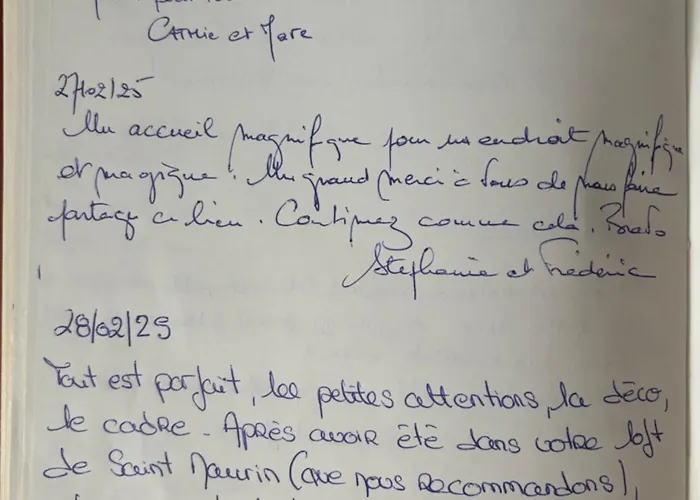 CATHIE et Marc
27/02/25
Un accueil magnifique pour un endroit magnifique
et magique. Un grand merci à vous de nous faire
partager ce lieu. Continuez comme cela. Bravo
Stéphanie et Frédéric
28/02/25
Tout est parfait, les petites attentions, la déco,
le cadre. Après avoir été dans votre loft
de Saint Maurin (que nous recommandons),